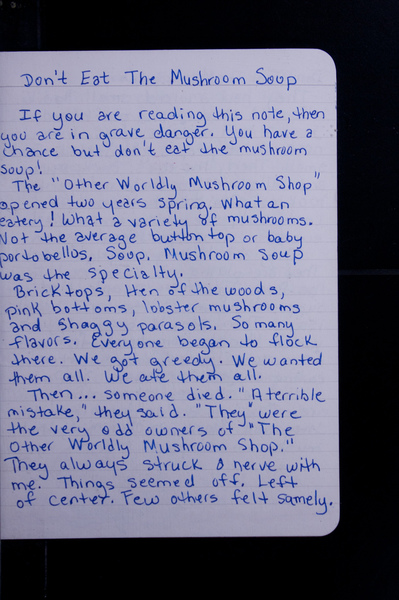 Don't Eat The Mushroom Soup
If you are reading this note, then
you are in grave danger. You have a
chance but don't eat the mushroom
soup!
The "Other Worldly Mushroom Shop"
opened two years spring. What an
eatery! What a variety of mushrooms.
Not the average button top or baby
portobellos. Soup. Mushroom Soup
was the specialty.
Bricktops, Hen of the woods,
pink bottoms, lobster mushrooms
and shaggy parasols. So many
flavors. Everyone began to flock
there. We got greedy. We wanted
them all. We ate them all.
Then... someone died. "A terrible
mistake," they said. "They" were
the very odd owners of "The
Other Worldly Mushroom Shop."
They always struck a nerve with
me. Things seemed off. Left
of center. Few others felt samely.